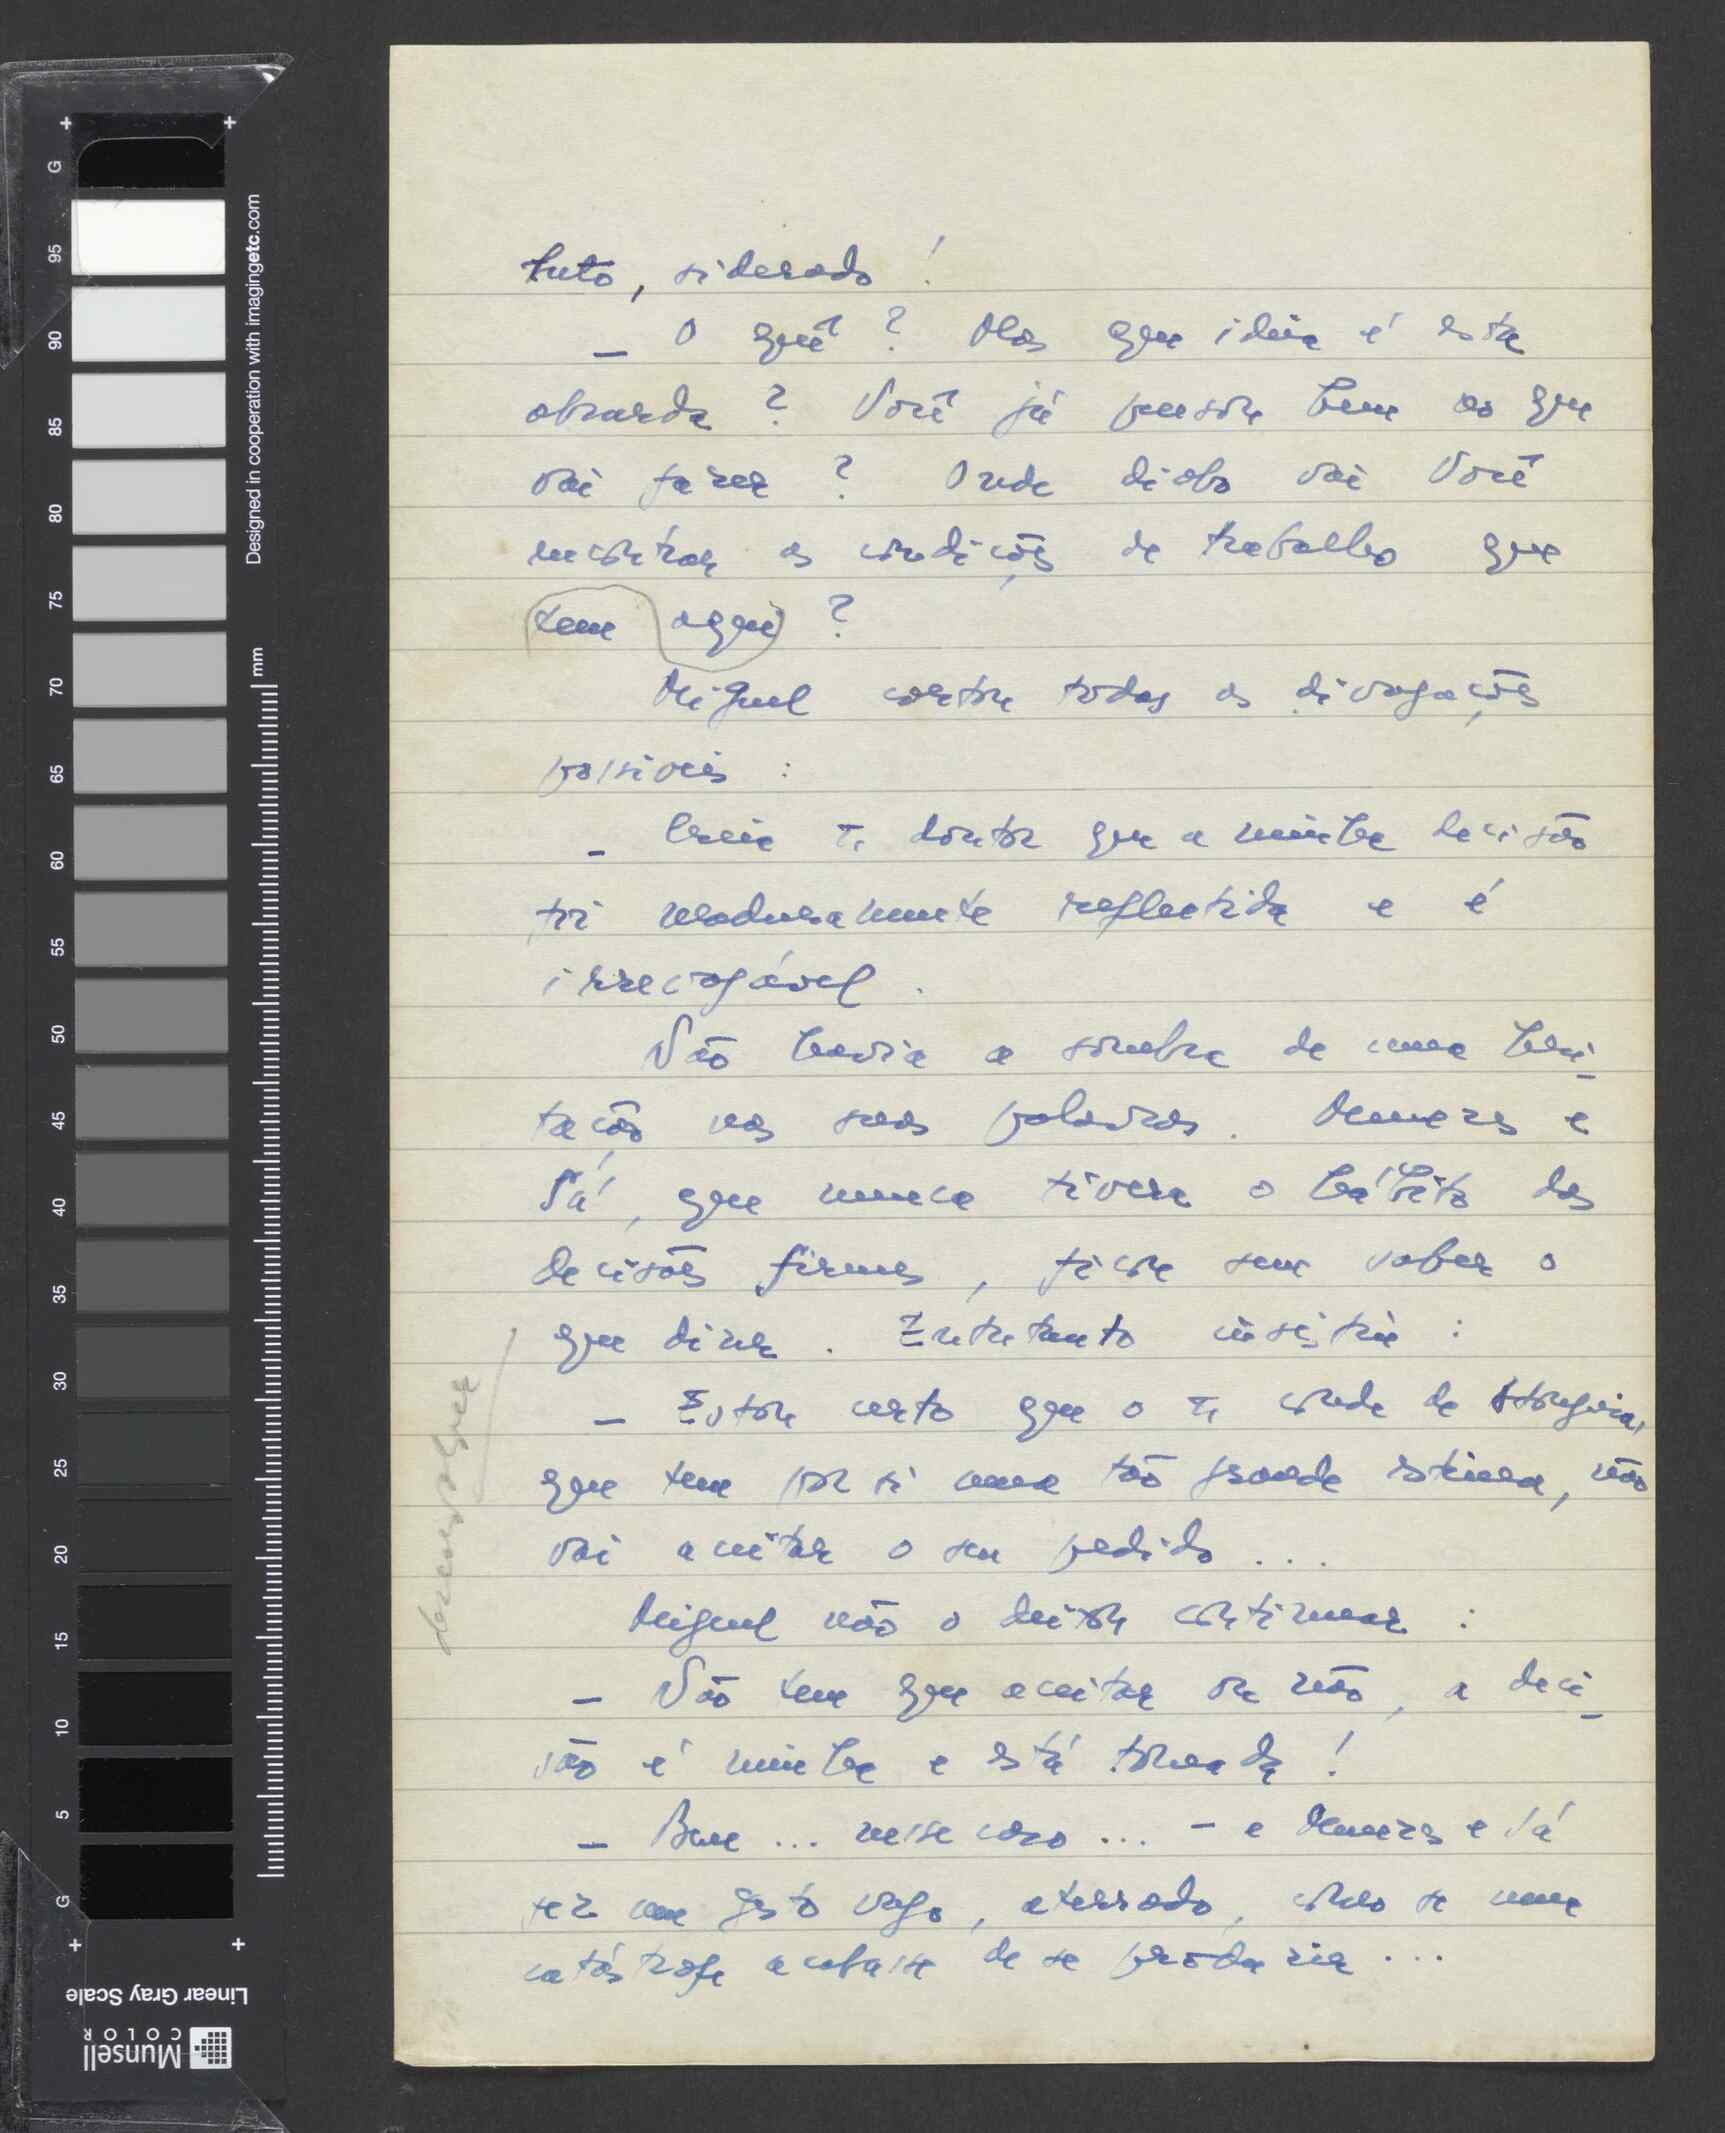 luto, siderado!
— O quê? Mas que ideia é esta
absurda? Você já pensou bem no que
vai fazer? Onde diabo vai Você
encontrar as condições de trabalho que
tem aqui?
Miguel cortou todas as divagações
possíveis:
— Creia Sr. doutor que a minha decisão
foi maduramente reflectida e é
irrevogável.
Não havia a sombra de uma hesi-
tação nas suas palavras. Meneres e
Sá, que nunca tivera o hábito das
decisões firmes, ficou sem saber o
que dizer. Entretanto insistiu:
— Estou certo que o Sr. conde de
que tem por si uma tão grande estima, não
vai aceitar o seu pedido...
Miguel não o deixou continuar:
— Não tem que aceitar ou não, a deci-
são é minha e está tomada!
— Bem... nesse caso... — e Meneres e Sá
fez um gesto vago, aterrado, como se uma
catástrofe acabasse de se produzir...
desenvolver
G 95 90 85 80 75 70 65 60 55 50 45 40 35 30 25 20 15 10 5 G
mm
Designed in cooperation with imagingetc.com
Linear Gray Scale
Munsell
COLOR